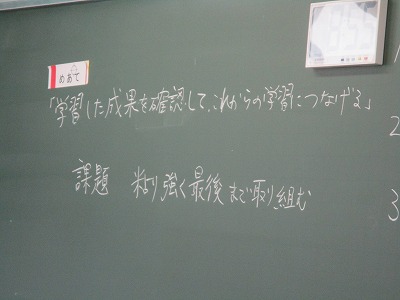 めあて
「学習した成果を確認して、これからの学習につなげる」
課題 粘り強く最後まで取り組む
2
3